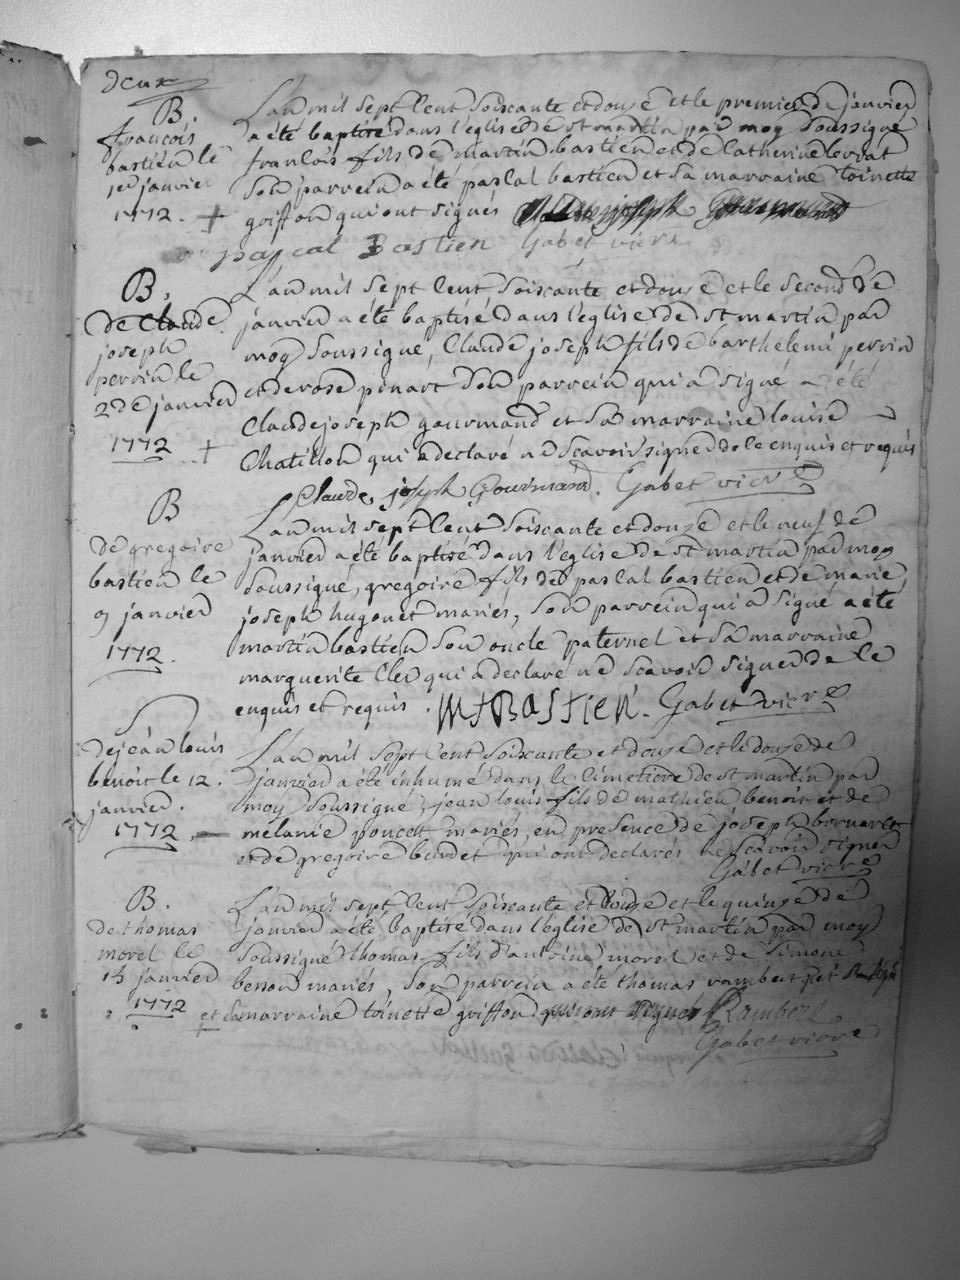 deux
B.
françois
bastien le
1er janvier
1772.
L'an mil sept cent soixante et douze et le premier de janvier
a été baptisé dans l'église de st martin par moy soussigné
françois fils de martin bastien et de catherine levrat
son parrein a été pascal bastien et sa marraine toinette
griffon qui ont signés
pascal Bastien Gabet vicre
B.
de Claude
joseph
perrin le
2de janvier
1772
L'an mil sept cent soixante et douze et le second de
janvier a été baptisé dans l'église de st martin par
moy soussigné, Claude joseph fils de barthelemi perrin
et de rose pinart son parrein qui a signé a été
Claude joseph gourmand et sa marraine louise
Chatillon qui a declaré ne scavoir signer de le enquis et requis
Claude joseph Gourmand. Gabet vicre
B
de gregoire
bastien le
9 janvier
1772.
L'an mil sept cent soixante et douze et le neuf de
janvier a été baptisé dans l'église de st martin par moy
soussigné, gregoire fils de pascal bastien et de marie
joseph hugonet mariés, son parrein qui a signé a été
martin bastien son oncle paternel et sa marraine
marguerite Cler qui a declaré ne scavoir signer de le
enquis et requis. Mt BASTIEN. Gabet vicre
S
de jean louis
benoit le 12.
janvier.
1772
L'an mil sept cent soixante et douze et le douze de
janvier a été inhumé dans le cimetiere de st martin par
moy soussigné, jean louis fils de mathieu benoit et de
mélanie poncet mariés, en presence de joseph
et de gregoire burdet qui ont declarés ne scavoir signer
Gabet vicre
B.
de thomas
morel le
15 janvier
1772
L'an mil sept cent soixante et douze et le quinze de
janvier a été baptisé dans l'église de st martin par moy
soussigné thomas fils d'antoine morel et de simone
besson mariés, son parrein a été thomas rambert
et sa marraine toinette griffon qui ont signés Rambert
Gabet vicre